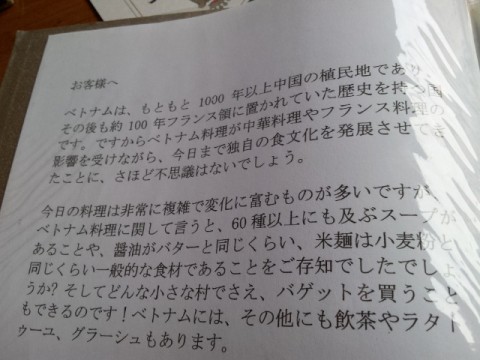 お客様へ
ベトナムは、もともと 1000 年以上中国の植民地であり、
その後も約 100 年フランス領に置かれていた歴史を持つ国
です。ですからベトナム料理が中華料理やフランス料理の
影響を受けながら、今日まで独自の食文化を発展させてき
たことに、さほど不思議はないでしょう。
今日の料理は非常に複雑で変化に富むものが多いですが、
ベトナム料理に関して言うと、60 種以上にも及ぶスープが
あることや、醤油がバターと同じくらい、米麺は小麦粉と
同じくらい一般的な食材であることをご存知でしたでしょ
うか? そしてどんな小さな村でさえ、バゲットを買うこと
もできるのです！ベトナムには、その他にも飲茶やラタト
ゥーユ、グラーシュもあります。